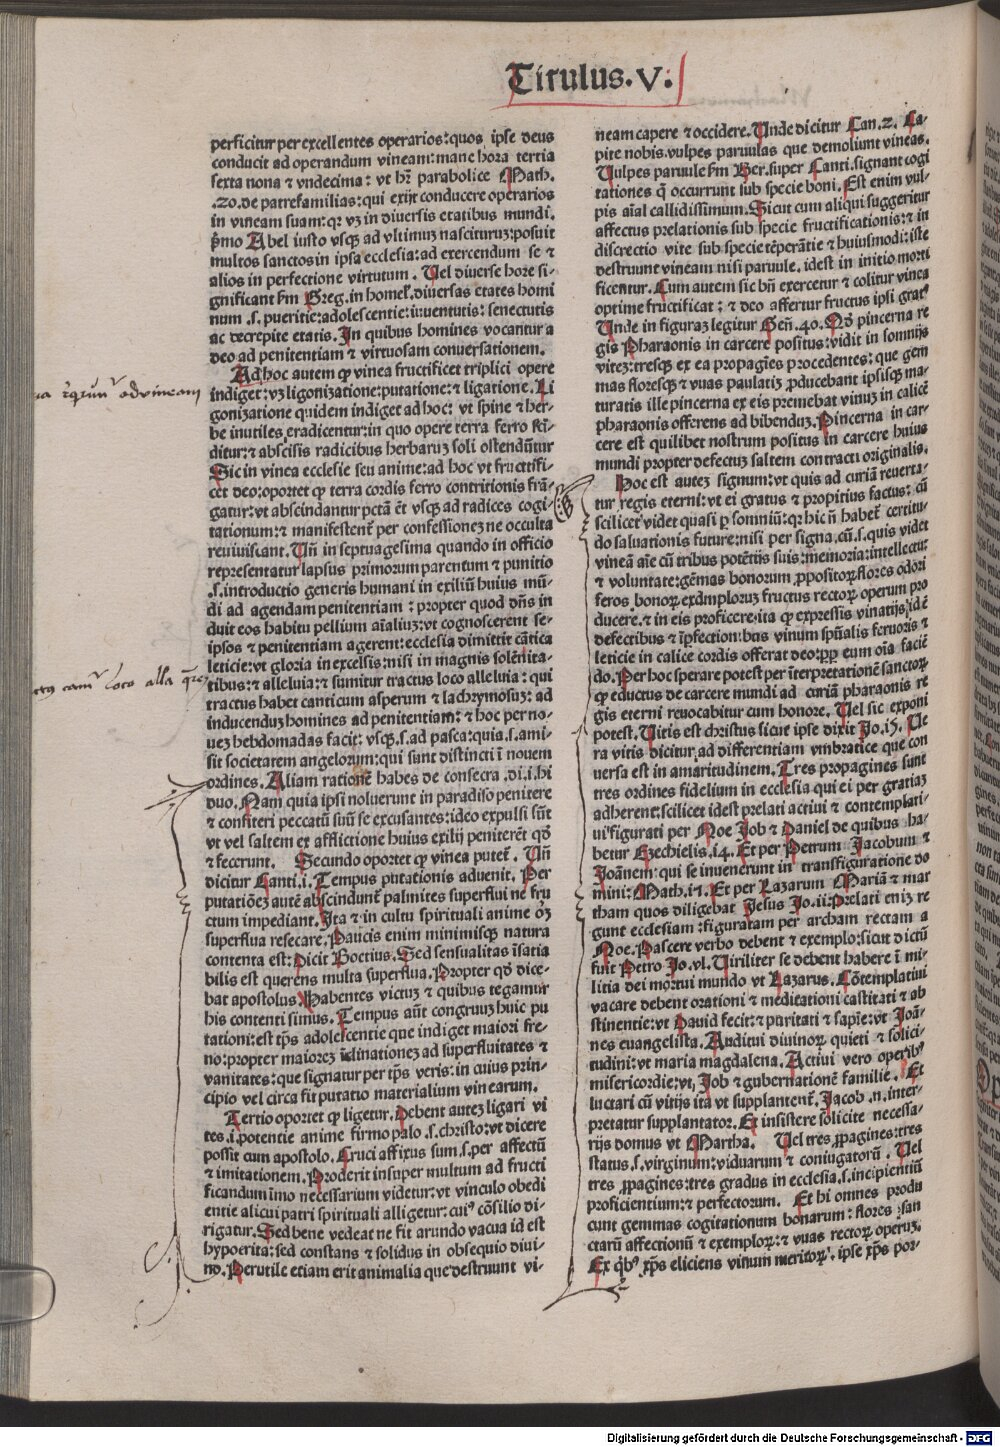 Titulus. V.
perficitur per excellentes operarios: quos ipse deus
conducit ad operandum vineam: mane hora tertia
sexta nona ⁊ vndecima: vt hr̄ parabolice Math.
.20. de patrefamilias: qui exijt conducere operarios
in vineam suam: qꝛ vꝫ in diuersis etatibus mundi.
pͥmo Abel iusto vsqꝫ ad vltimuꝫ nasciturum: posuit
multos sanctos in ipsa ecclesia: ad exercendum se ⁊
alios in perfectione virtutum. Uel diuerse hore si-
gnificant ẜm Greg. in homel̓. diuersas etates homi
num .s. pueritie: adolescentie: iuuentutis: senectutis
ac decrepite etatis. In quibus homines vocantur a
deo ad penitentiam ⁊ virtuosam conuersationem.
Ad hoc autem ꝙ vinea fructificet triplici opere
indiget: vꝫ ligonizatione: putatione: ⁊ ligatione. Li
gonizatione quidem indiget ad hoc: vt spine ⁊ her-
be inutiles eradicentur: in quo opere terra ferro scī
ditur: ⁊ abscisis radicibus herbarum soli ostendūtur
Sic in vinea ecclesie seu anime: ad hoc vt fructifi-
cet deo: oportet ꝙ terra cordis ferro contritionis frā-
gatur: vt abscindantur pctā ēt vsqꝫ ad radices cogi-
tationum: ⁊ manifestent̉ per confessionem ne occulta
reuiuiscant. Un̄ in septuagesima quando in officio
representatur lapsus primorum parentum ⁊ punitio
.s. introductio generis humani in exiliū huius mū-
di ad agendam penitentiam: propter quod dn̄s in
duit eos habitu pellium aīaliuꝫ: vt cognoscerent se-
ipsos ⁊ penitentiam agerent: ecclesia dimittit cātica
leticie: vt gloria in excelsis: nisi in magnis solēnita-
tibus: ⁊ alleluia: ⁊ sumitur tractus loco alleluia: qui
tractus habet canticum asperum ⁊ lachrymosuꝫ: ad
inducenduꝫ homines ad penitentiam: ⁊ hoc per no-
ueꝫ hebdomadas facit: vsqꝫ .s. ad pasca: quia .s. ami-
sit societatem angelorum: qui sunt distincti ī nouem
ordines. Aliam rationē habes de consecra. di. i. hi
duo. Nam quia ipsi noluerunt in paradiso penitere
⁊ confiteri peccatū suū se excusantes: ideo expulsi sūt
vt vel saltem ex afflictione huius exilij peniterēt qd̓
⁊ fecerunt. Secundo oportet ꝙ vinea putet̉. Un̄
dicitur Canti. i. Tempus putationis aduenit. Per
putatiōeꝫ autē abscindunt̉ palmites superflui ne fru
ctum impediant. Ita ⁊ in cultu spirituali anime oꝫ
superflua resecare. Paucis enim minimisqꝫ natura
contenta est: Dicit Boetius. Sed sensualitas īsatia
bilis est querens multa superflua. Propter qd̓ dice-
bat apostolus. Habentes victuꝫ ⁊ quibus tegamur
his contenti simus. Tempus aūt congruuꝫ huic pu
tationi: est tp̄s adolescentie que indiget maiori fre-
no: propter maioreꝫ īclinationeꝫ ad superfluitates ⁊
vanitates: que signatur per tp̄s veris: in cuius prin-
cipio vel circa fit putatio materialium vinearum.
Tertio oportet ꝙ ligetur. Debent auteꝫ ligari vi
tes .i. potentie anime firmo palo .s. christo: vt dicere
possit cum apostolo. Cruci affixus sum .s. per affectū
⁊ imitationem. Proderit insuper multum ad fructi
ficandum īmo necessarium videtur: vt vinculo obedi
entie alicui patri spirituali alligetur: cuiꝰ cōsilio di-
rigatur. Sed bene vedeat ne fit arundo vacua id est
hypocrita: sed constans ⁊ solidus in obsequio diui-
no. Perutile etiam erit animalia que destruunt vi-
neam capere ⁊ occidere. Unde dicitur Can. 2. Ca-
pite nobis vulpes paruulas que demoliunt vineas.
Uulpes paruule ẜm Ber. super Canti. signant cogi
tationes q̄ occurrunt sub specie boni. Est enim vul-
pis aīal callidissimum. Sicut cum aliqui suggeritur
affectus prelationis sub specie fructificationis: ⁊ in
discretio vite sub specie tēperātie ⁊ huiusmodi: iste
destruunt vineam nisi paruule, idest in initio morti
ficentur. Cum autem sic bn̄ exercetur ⁊ colitur vinea
optime fructificat: ⁊ deo affertur fructus ipsi gratꝰ
Unde in figuraꝫ legitur Gen̄. 40. Qd̓ pincerna re
gis Pharaonis in carcere positus: vidit in somnijs
viteꝫ: tresqꝫ ex ea propagīes procedentes: que gem
mas floresqꝫ ⁊ vuas paulatiꝫ ꝓducebant ipsisqꝫ ma-
turatis ille pincerna ex eis premebat vinuꝫ in calicē
pharaonis offerens ad bibenduꝫ. Pincerna in car-
cere est quilibet nostrum positus in carcere huius
mundi propter defectuꝫ saltem contracti originalis.
Hoc est auteꝫ signum: vt quis ad curiā reuerta-
tur regis eterni: vt ei gratus ⁊ propitius factus: cū
scilicet videt quasi ꝑ somniū: qꝛ hic n̄ habet̉ certitu-
do saluationis future: nisi per signa, cū .s. quis videt
vineā aīe cū tribus potētijs suis: memoria: intellectu
⁊ voluntate: gēmas bonorum ꝓpositoꝝ flores odori
feros bonoꝝ exāmploruꝫ fructus rectoꝝ operum pro
ducere. ⁊ in eis proficere. ita ꝙ expressis vinatijs, id ē
defectibus ⁊ īꝑfectionibus vinum spūalis feruoris ⁊
leticie in calice cordis offerat deo: ꝓpꝑ eum oīa faciē
do. Per hoc sperare potest per īterpretationē sanctoꝝ
ꝙ eductus de carcere mundi ad curiā pharaonis re
gis eterni reuocabitur cum honore. Uel sic exponi
potest. Uitis est christus sicut ipse dixit Jo. i5. Ue
ra vitis dicitur, ad differentiam vmbratice que con
uersa est in amaritudinem. Tres propagines sunt
tres ordines fidelium in ecclesia qui ei per gratiaꝫ
adherent: scilicet idest prelati actiui ⁊ contemplati-
ui figurati per Noe Job ⁊ Daniel de quibus ha-
betur Ezechielis. i4. Et per Petrum Jacobum ⁊
Joānem: qui se inuenerunt in transfiguratione do
mini: Math. i7. Et per Lazarum Mariā ⁊ mar
tham quos diligebat Jesus Jo. ii: Prelati eniꝫ re
gunt ecclesiam: figuratam per archam rectam a
Noe. Pascere verbo debent ⁊ exemplo: sicut dictū
fuit Petro Jo. vl. Uiriliter se debent habere ī mi-
litia dei mortui mundo vt Lazarus. Cōtemplatiui
vacare debent orationi ⁊ meditationi castitati ⁊ ab
stinentie: vt Dauid fecit: ⁊ puritati ⁊ sapīe: vt Joā-
nes euangelista. Auditui diuinoꝝ quieti ⁊ solici-
tudini: vt maria magdalena. Actiui vero operibꝰ
misericordie: vt, Job ⁊ gubernationē familie. Et
luctari cū vitijs ita vt supplantent̉. Jacob .n. inter-
pretatur supplantator. Et insistere solicite necessa-
rijs domus vt Martha. Uel tres ꝓpagines: tres
status .s. virginum: viduarum ⁊ coniugatorū. Uel
tres ꝓpagines: tres gradus in ecclesia .s. incipientiū
proficientium: ⁊ perfectorum. Et hi omnes produ
cunt gemmas cogitationum bonarum: flores: san
ctarū affectionū ⁊ exemploꝝ: ⁊ vuas rectoꝝ operuꝫ.
Ex q̇bꝰ xp̄s eliciens vinum meritoꝝ. ipse xp̄s por-
Digitalisierung gefördert durch die Deutsche Forschungsgemeinschaft - DFG